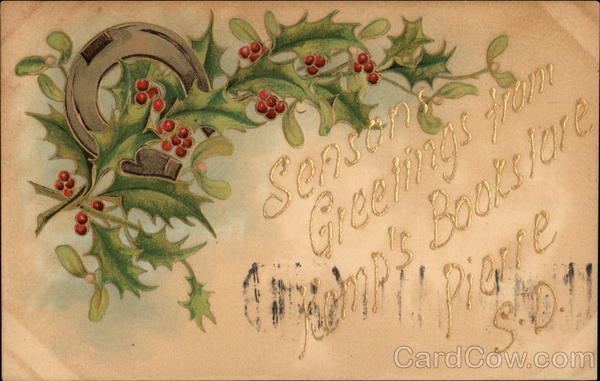 Sensons
Greetings from
Kemp's Bookstore
Pierre
S.D.
CardCow.com